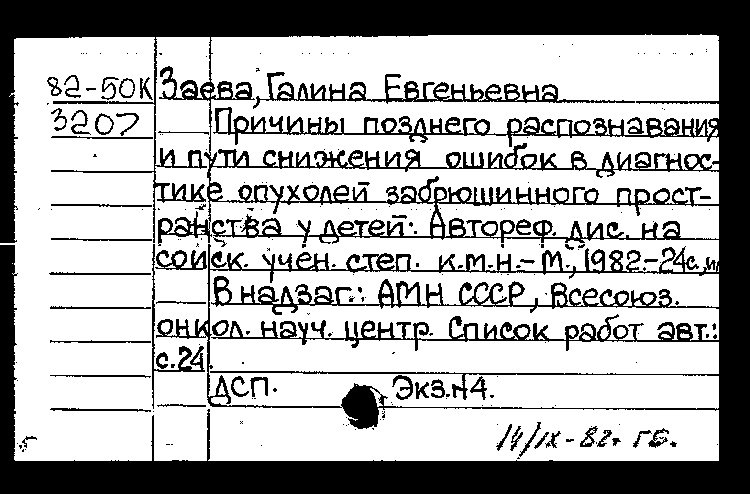 82-50К Заева, Галина Евгеньевна
3207 Причины позднего распознавания
и пути снижения ошибок в диагнос-
тике опухолей забрюшинного прост-
ранства у детей: Автореф. дис. на
соиск. учен. степ. к.м.н.-М., 1982.-24с., ил
В надзаг.: АМН СССР, Всесоюз.
онкол. науч. центр. Список работ авт.:
с.24.
ДСП. Экз.N4.
14/IX-82г. ГБ.